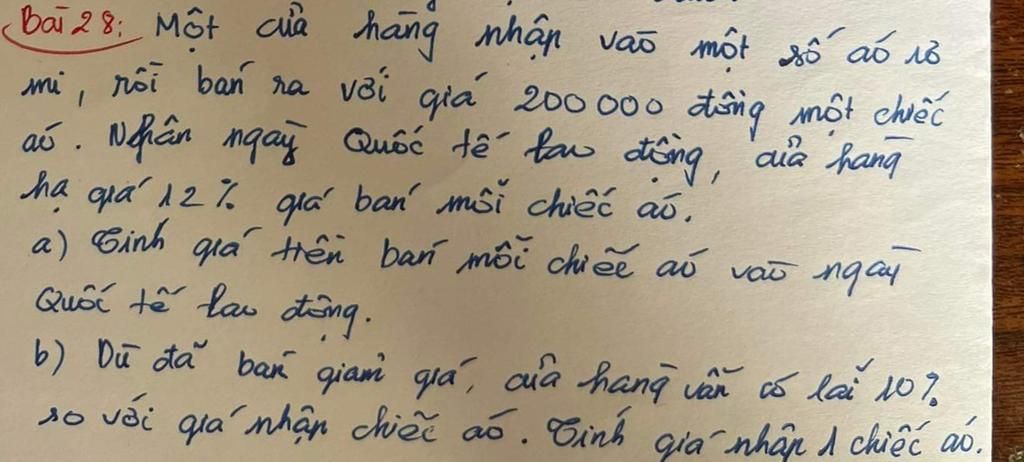 Bài 28: Một cửa hàng nhập vào một số áo sơ
mi, rồi bán ra với giá 200 000 đồng một chiếc
áo. Nhân ngày Quốc tế lao động, cửa hàng
hạ giá 12% giá bán mỗi chiếc áo.
a) Tính giá tiền bán mỗi chiếc áo vào ngày
Quốc tế lao động.
b) Dù đã bán giảm giá, cửa hàng vẫn có lãi 10%
so với giá nhập chiếc áo. Tính giá nhập 1 chiếc áo.